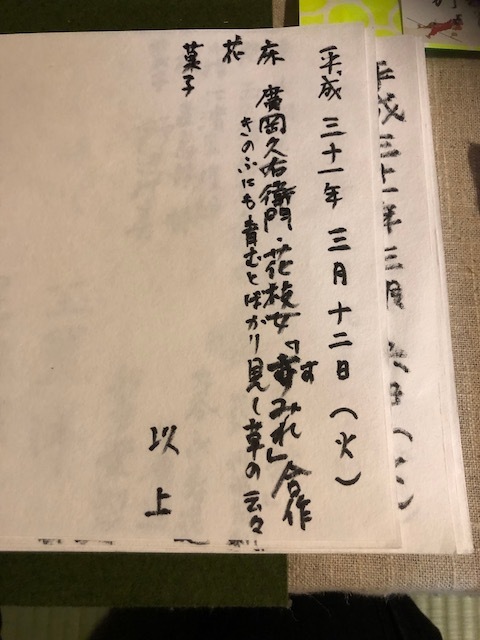 平成三十一年三月十二日(火)
床 廣岡久右衛門・花桜女「すみれ」合作
きのふにも青むとばかり見し草の云々
花
菓子
以上
平成三十一年三月